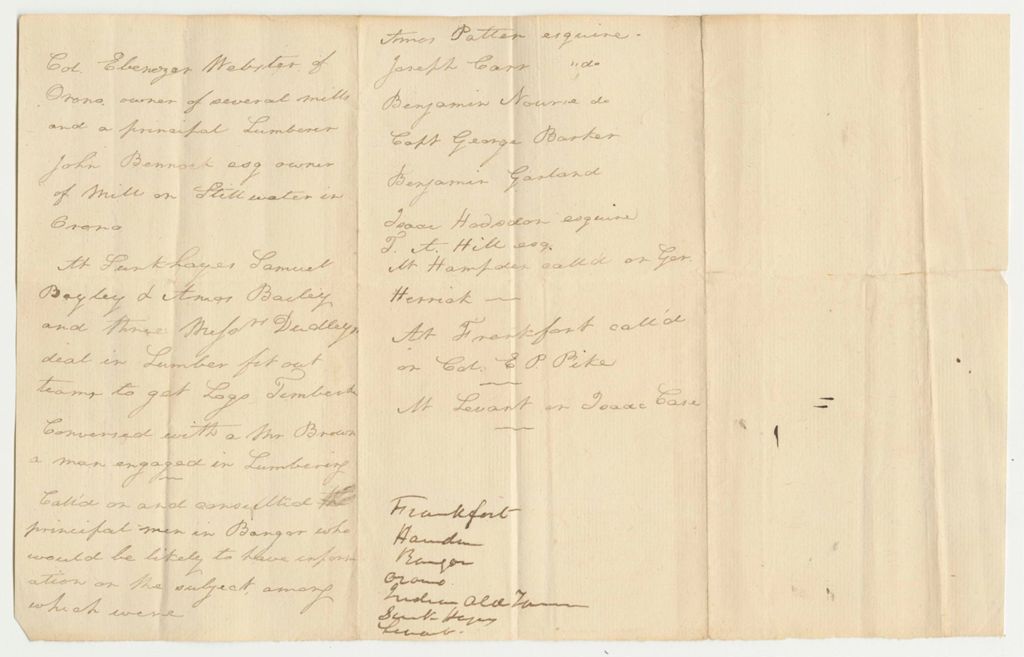 Col. Ebenezer Webster of
Orono owner of several mills
and a principal Lumberer
John Bennoch esq owner
of Mill on Stillwater in
Orono
At Sunkhayes Samuel
Bayley & Amos Bailey
and three Messrs Dudleys
deal in Lumber fit out
teams to get Logs Timber &c
Conversed with a Mr Brown
a man engaged in Lumbering
Call'd on and consulted the
principal men in Bangor who
would be likely to have inform
ation on the subject, among
which were
Amos Patten esquire.
Joseph Carr "do
Benjamin Nourse do
Capt George Barker
Benjamin Garland
Isaac Hodsdon esquire
T. A. Hill esq.
At Hampden call'd on Gen.
Herrick
At Frankfort call'd
on Col. E P. Pike
At Levant on Isaac Case
Frankfort
Hamden
Bangor
Orono.
Indian Old Town
Sunk Hayes
Levant.